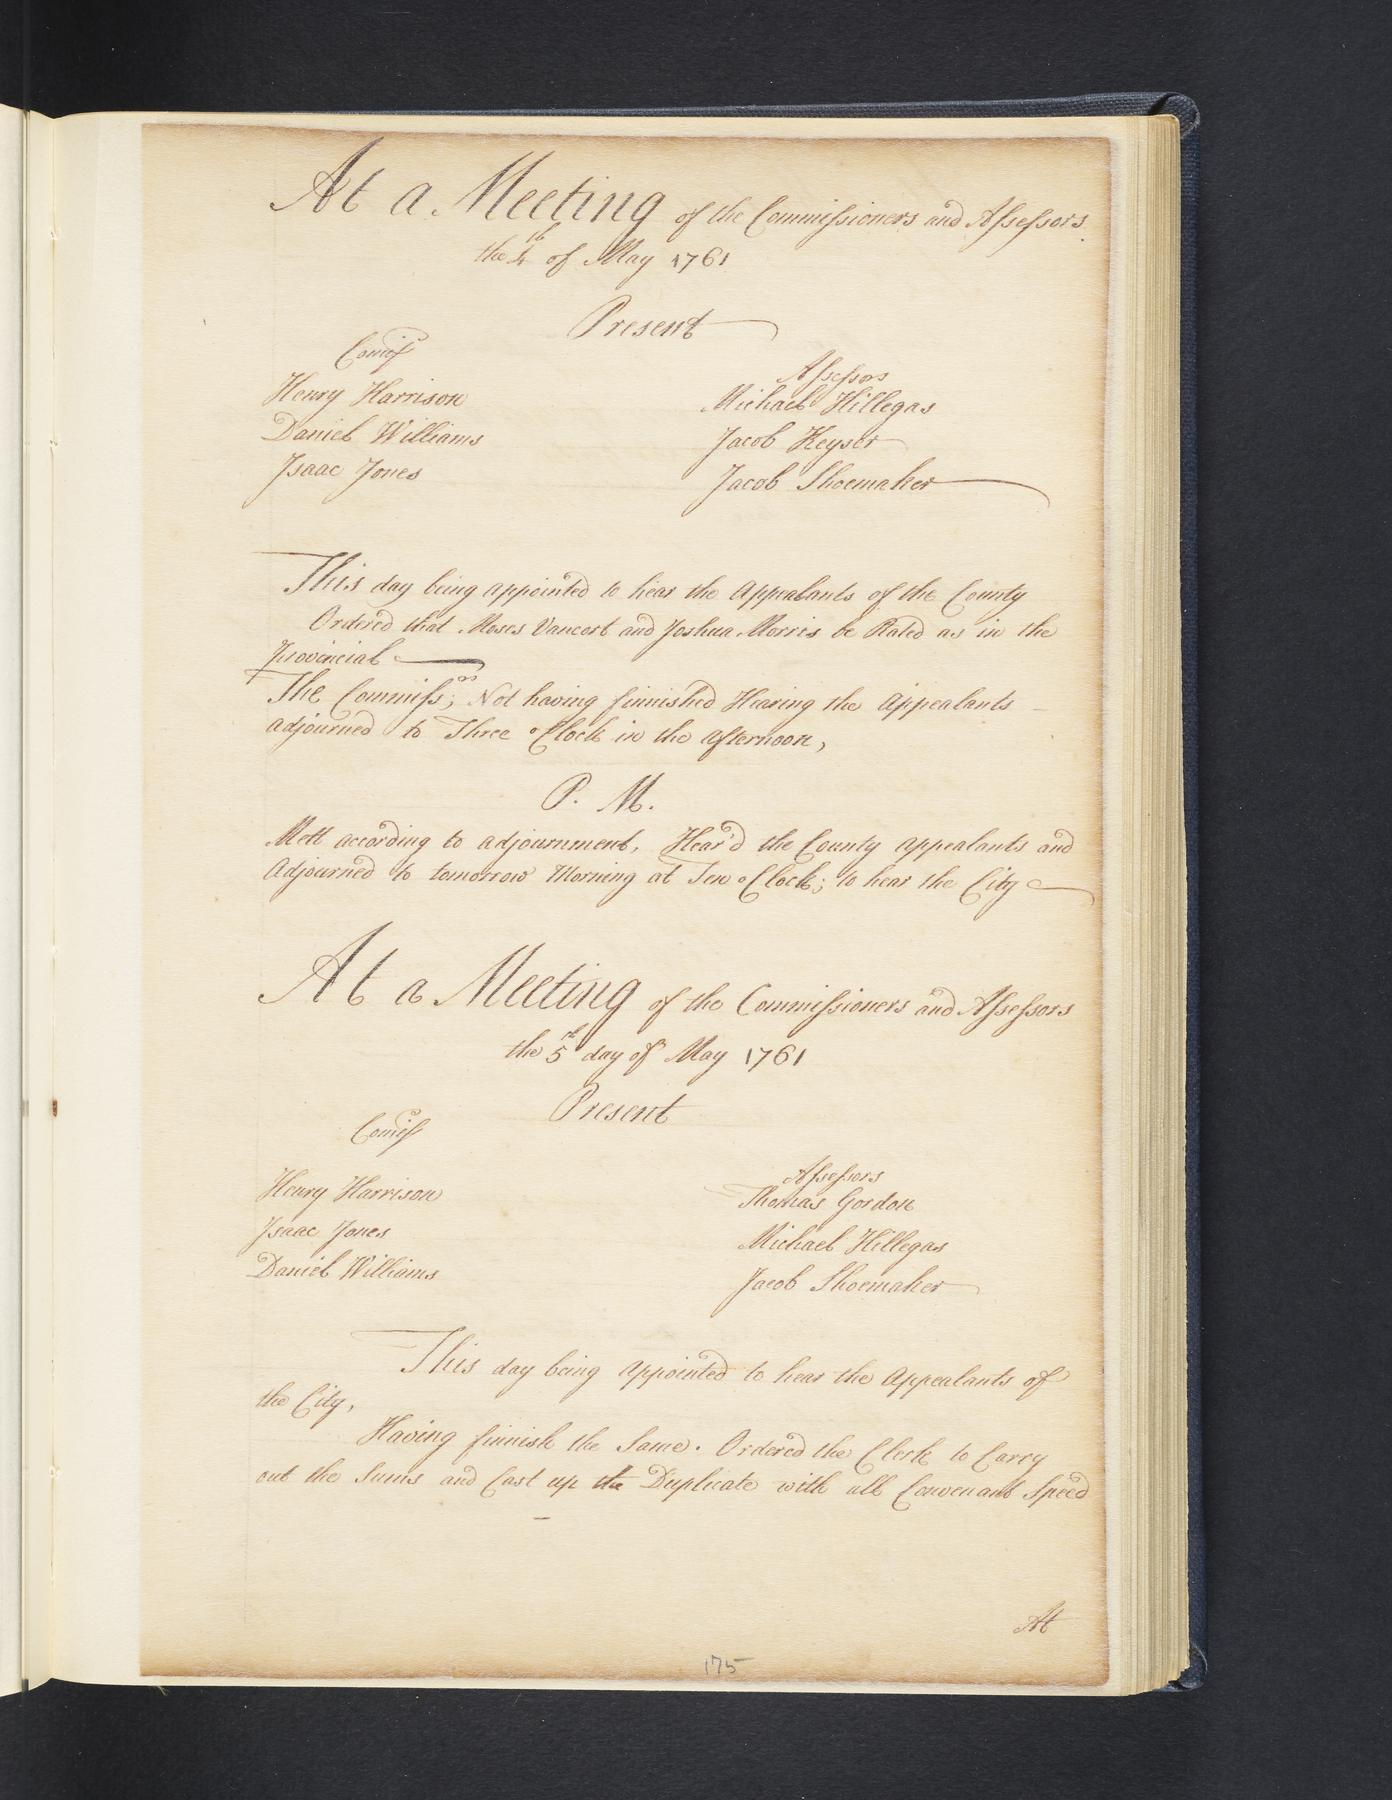 At a Meeting of the Commissioners and Assessors
the 4th of May 1761
Present
Comis
Henry Harrison
Daniel Williams
Isaac Jones
Assessors
Michael Hillegas
Jacob Keyser
Jacob Shoemaker
This day being appointed to hear the Appealants of the County
Ordered that Moses Vancort and Joshua Morris be Rated as in the
Provincial
The Commissrs; Not having finnished Hearing the Appealants
adjourned to Three oClock in the afternoon,
P. M.
Mett according to adjournment, Hear'd the County appealants and
Adjourned to tomorrow Morning at Ten oClock; to hear the City
At a Meeting of the Commissioners and Assessors
the 5th day of May 1761
Present
Comis
Henry Harrison
Isaac Jones
Daniel Williams
Assessors
Thomas Gordon
Michael Hillegas
Jacob Shoemaker
This day being appointed to hear the Appealants of
the City,
Having finnish the Same. Ordered the Clerk to Carry
out the Sums and Cast up the Duplicate with all Convenant Speed
At
175